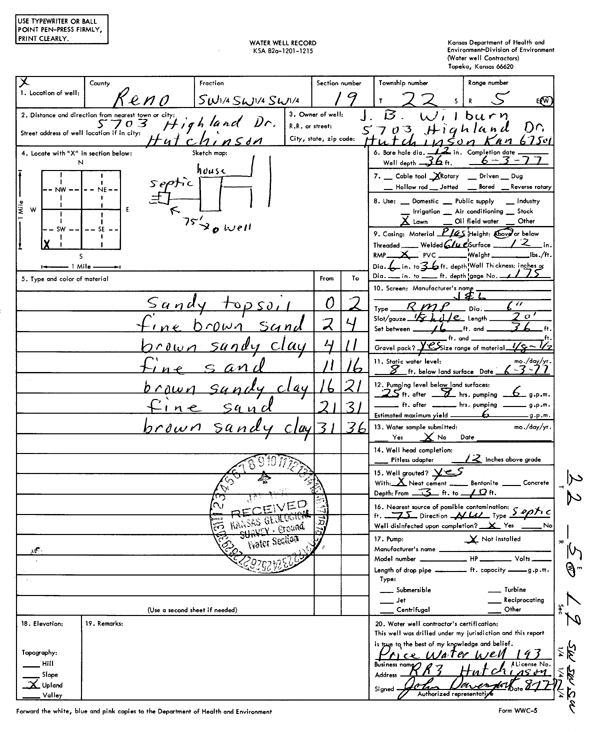 USE TYPEWRITER OR BALL
POINT PEN-PRESS FIRMLY,
PRINT CLEARLY.
WATER WELL RECORD
KSA 82a-1201-1215
Kansas Department of Health and
Environment-Division of Environment
(Water well Contractors)
Topeka, Kansas 66620
X
1. Location of well:
County
Reno
Fraction
SW 1/4 SW 1/4 SW 1/4
Section number
19
Township number
T 22 S
Range number
R 5 E/W
2. Distance and direction from nearest town or city:
5703 Highland Dr.
Street address of well location if in city:
Hutchinson
3. Owner of well: J. B. Wilburn
R.R. or street: 5703 Highland Dr.
City, state, zip code: Hutchinson Kan 67501
4. Locate with "X" in section below:
N
NW NE
W E
SW SE
X
S
1 Mile
1 Mile
Sketch map:
house
septic
75'
well
6. Bore hole dia. 12 in. Completion date
Well depth 36 ft. 6-3-77
7. Cable tool X Rotary Driven Dug
Hollow rod Jetted Bored Reverse rotary
8. Use: Domestic Public supply Industry
Irrigation Air conditioning Stock
X Lawn Oil field water Other
9. Casing: Material Plas Height: Above or below
Threaded Welded Glue Surface 12 in.
RMP X PVC Weight lbs./ft.
Dia. 6 in. to 36 ft. depth Wall Thickness: inches or
Dia. in. to ft. depth gage No. .175
10. Screen: Manufacturer's name
J&L
Type RMP Dia. 6"
Slot/gauze 1/8 hole Length 20'
Set between 16 ft. and 36 ft.
ft. and ft.
Gravel pack? yes Size range of material 1/8-1/4
11. Static water level: mo./day/yr.
8 ft. below land surface Date 6-3-77
12. Pumping level below land surfaces:
25 ft. after 8 hrs. pumping 6 g.p.m.
ft. after hrs. pumping g.p.m.
Estimated maximum yield 6 g.p.m.
13. Water sample submitted: mo./day/yr.
Yes X No Date
14. Well head completion:
Pitless adapter 12 Inches above grade
15. Well grouted? yes
With: X Neat cement Bentonite Concrete
Depth: From 3 ft. to 10 ft.
16. Nearest source of possible contamination:
ft. 75 Direction NW Type Septic
Well disinfected upon completion? X Yes No
17. Pump: X Not installed
Manufacturer's name
Model number HP Volts
Length of drop pipe ft. capacity g.p.m.
Type:
Submersible Turbine
Jet Reciprocating
Centrifugal Other
5. Type and color of material From To
Sandy topsoil 0 2
fine brown sand 2 4
brown sandy clay 4 11
fine sand 11 16
brown sandy clay 16 21
fine sand 21 31
brown sandy clay 31 36
RECEIVED
KANSAS GEOLOGICAL
SURVEY - Ground
Water Section
(Use a second sheet if needed)
18. Elevation:
Topography:
Hill
Slope
X Upland
Valley
19. Remarks:
20. Water well contractor's certification:
This well was drilled under my jurisdiction and this report
is true to the best of my knowledge and belief.
Price Water Well 193
Business name License No.
Address RR3 Hutchinson
Signed John Davenport Date
Authorized representative
22 - 5 W 19 SW SW SW
T R E Sec 1/4 1/4 1/4
Forward the white, blue and pink copies to the Department of Health and Environment
Form WWC-5